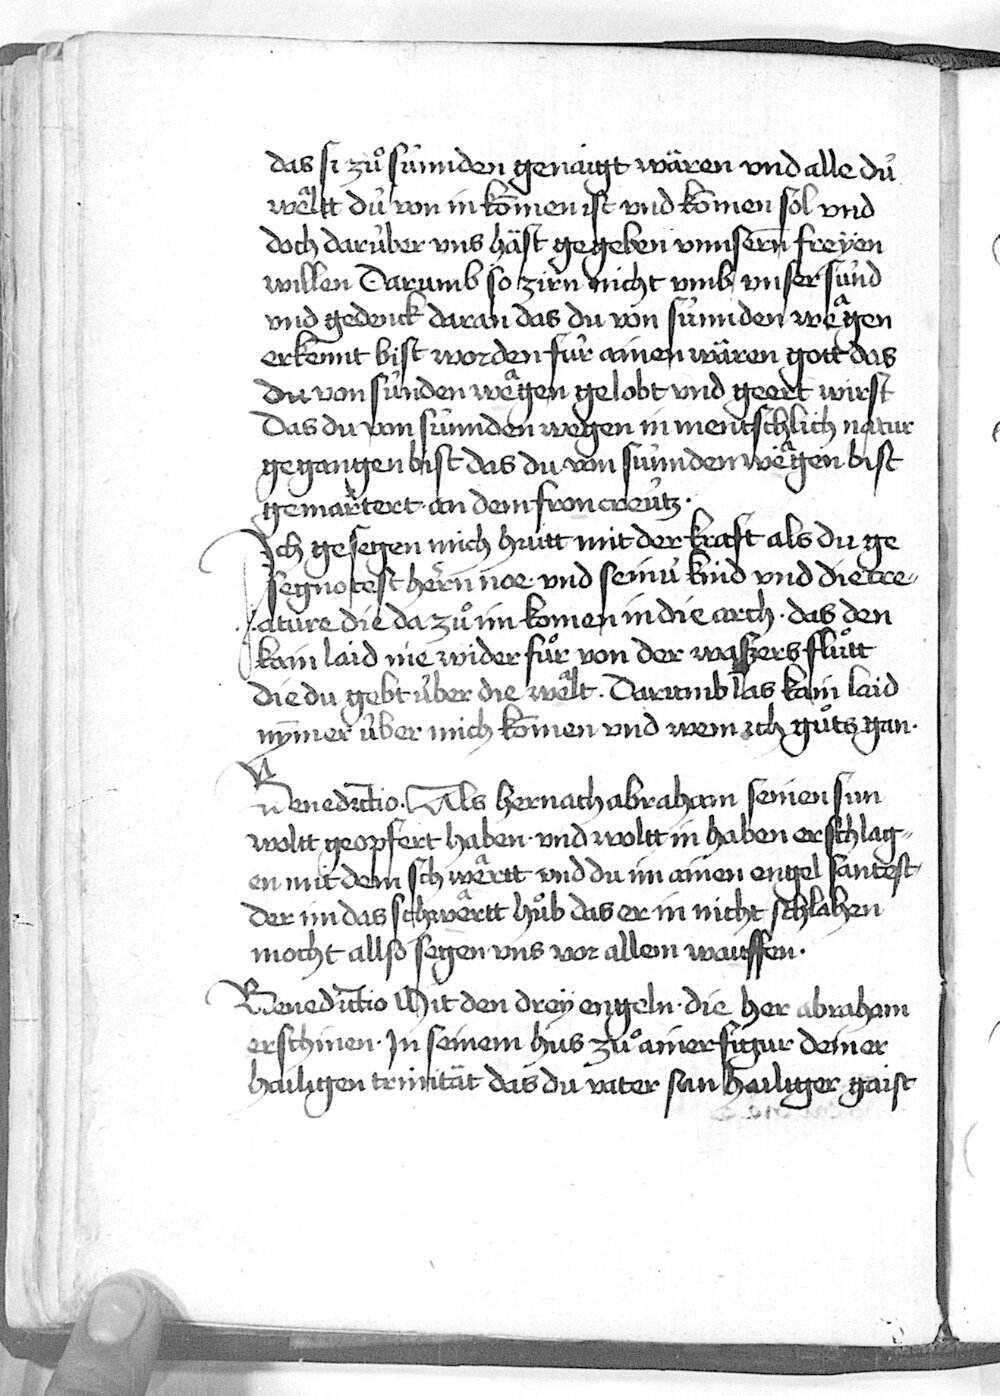 das si zuͦ súnnden genaigt wären vnd alle dú
weͣltt dú von in kom̄en ist vnd kom̄en sol vnd
doch darúber vns häst gegeben vnnsern̄ freyen
willen Darumb so zirn̄ nicht vmb vnser súnd
vnd gedenck daran das du von súnnden weͣgen
erkennt bist worden fúr ainen wären gott das
du von súnden weͣgen gelobt vnd geert wirst
Das du von súnnden wegen in mentschlich natur
gegangen bist das du von súnnden weͣgen bist
gemartert an dem fron creútz ·
Ich gesegen mich hutt mit der kraft als du ge
segnotest hern̄ noe vnd seinú kind vnd die cre„
ature die da zuͦ im komen in die arch · das den
kain laid nie wider fuͦr von der waszers fluͦtt
die du gebt úber die weͣlt · Darumb las kain laid
nym̄er úber mich kom̄en vnd wem ich guͦts gan ·
Benedictio · Als her nach abraham seinen sun
woltt geopfert haben · vnd woltt in haben erschlag„
en mit dem schweͣrtt vnd du im ainen engel santest ·
der im das schweͣrtt huͦb das er in nicht schlahen
mocht allso segen vns vor allem wauffen ·
Benedictio Mit den drey engeln · die her abraham
erschinen · In seinem hus zuͦ ainer figur deiner
hailigen trinität das du vater sun hailiger gaist